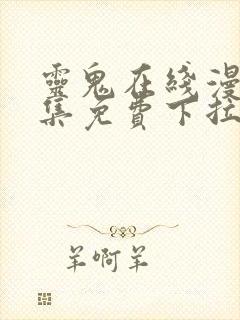 靈鬼在綫漫
集免費下拉
羊啊羊